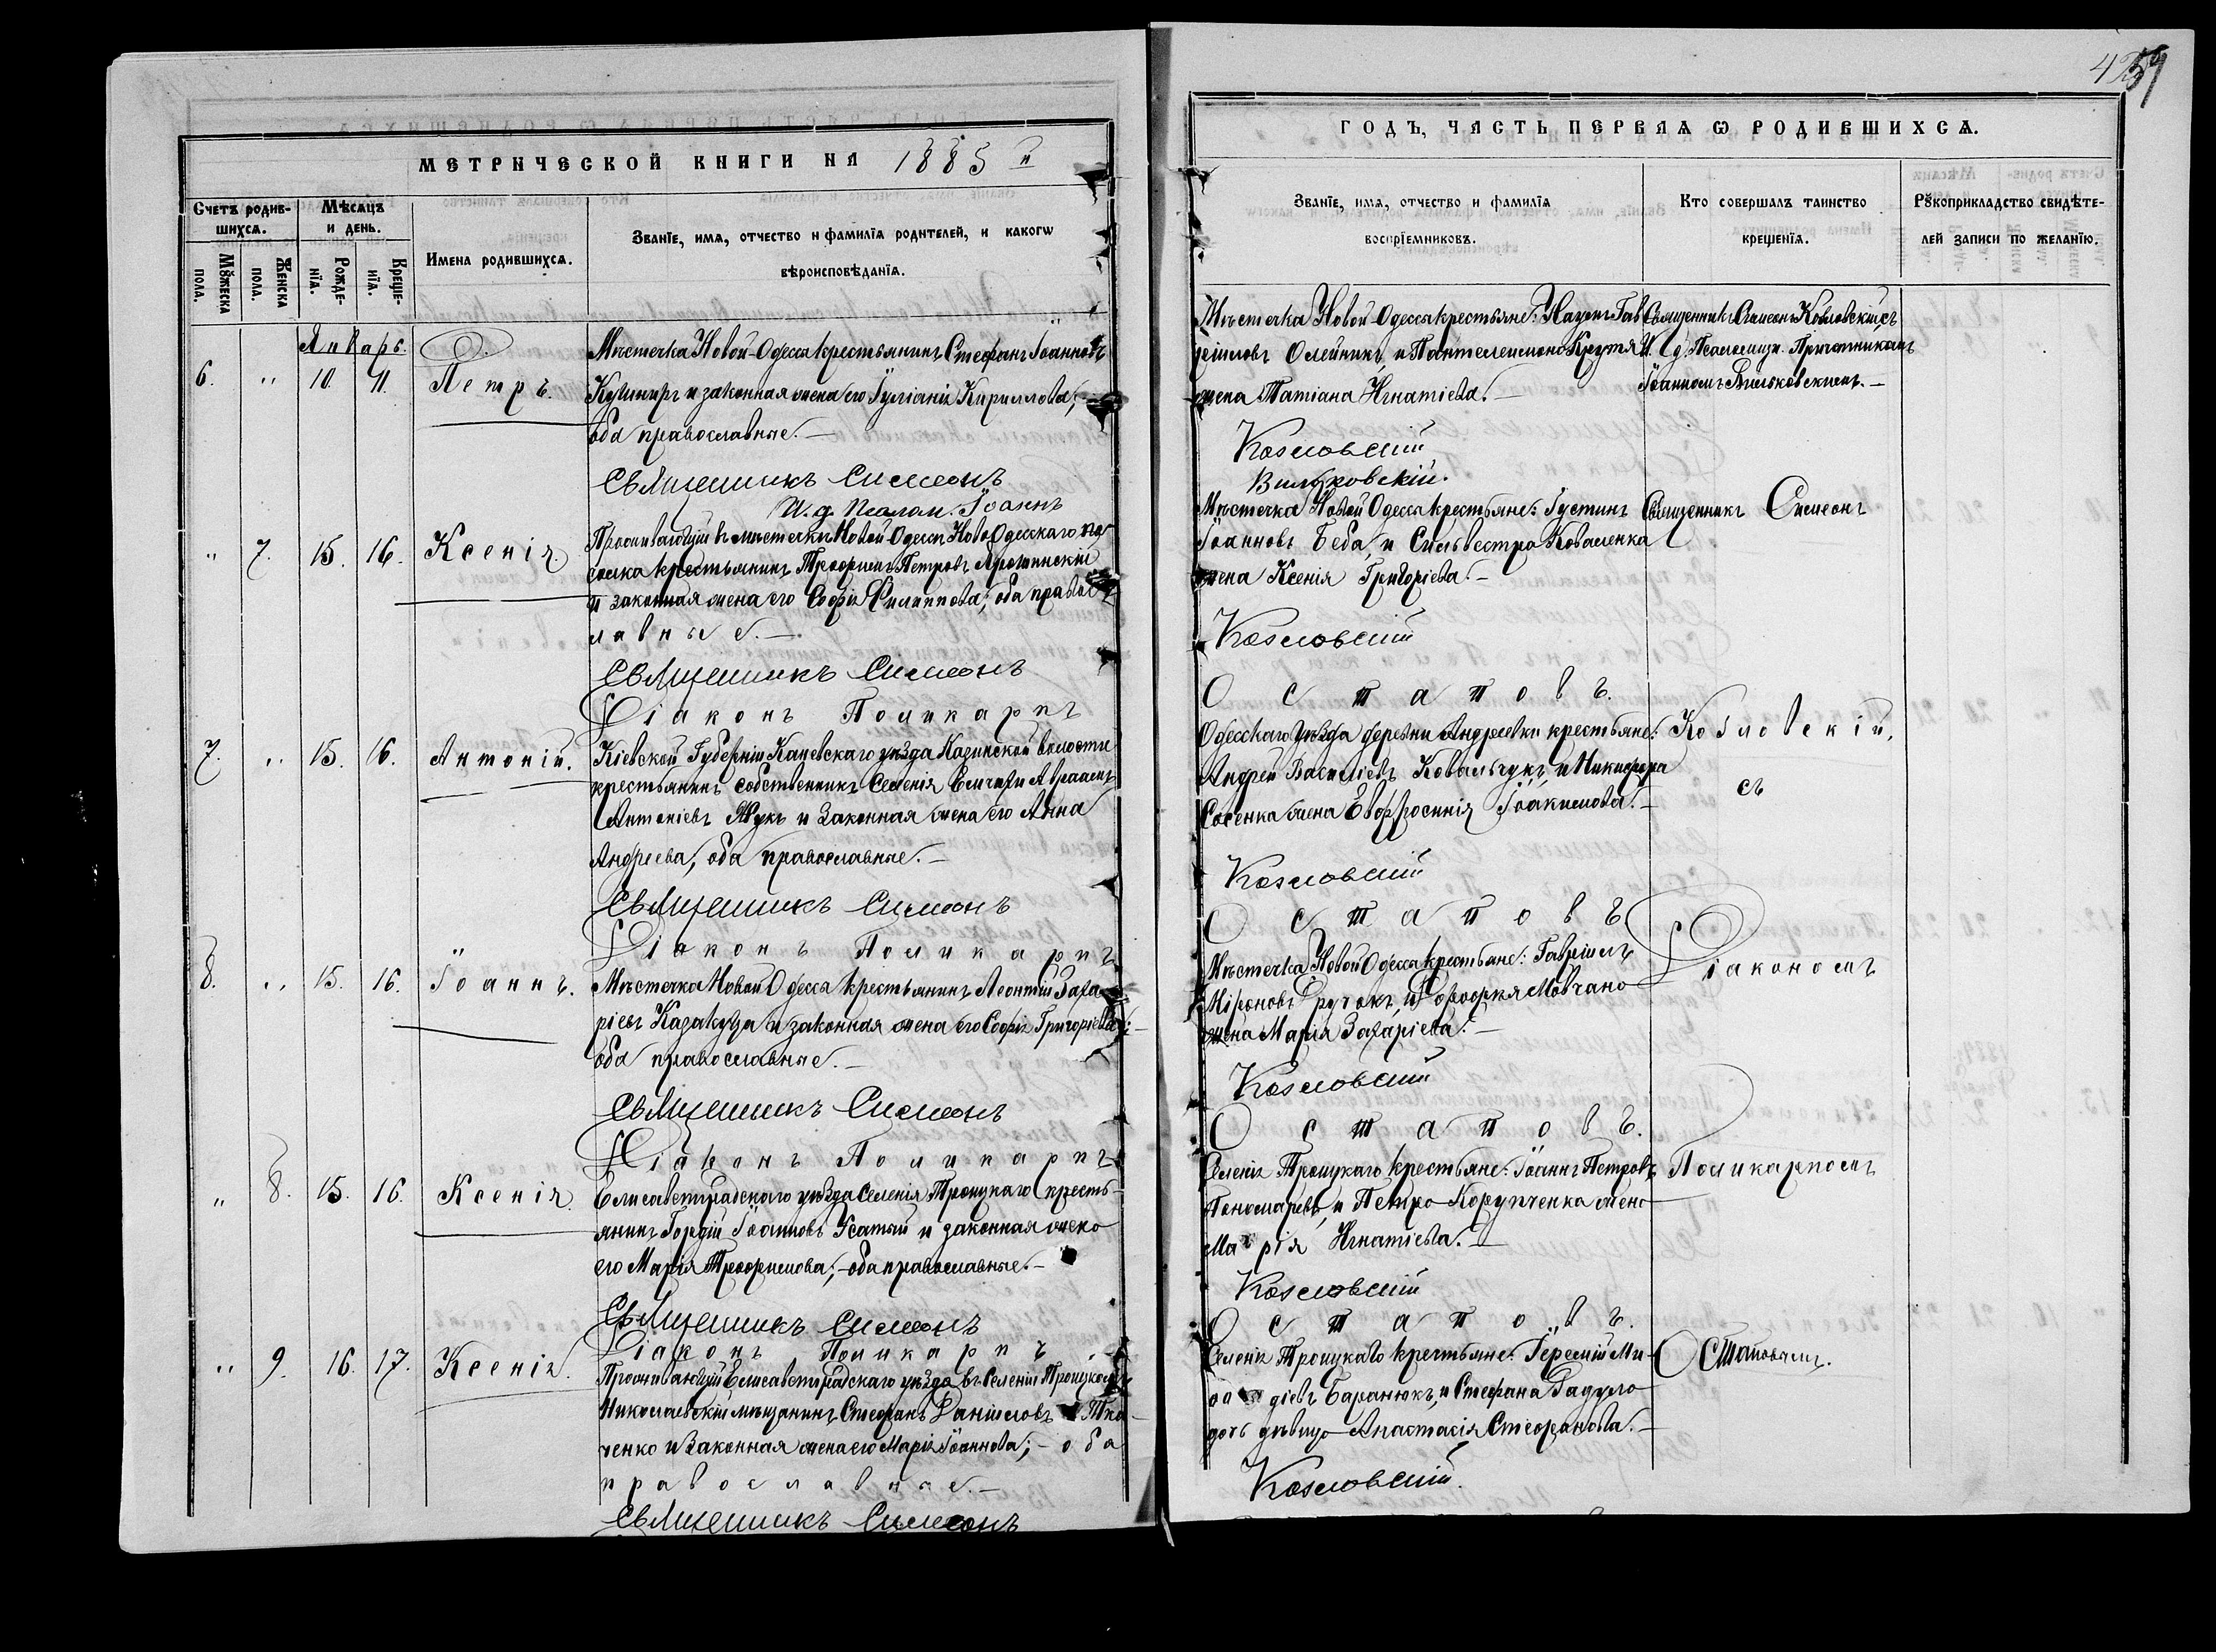 4259
МЕТРИЧЕСКОЙ КНИГИ НА 1885 й
ГОДЪ, ЧАСТЬ ПЕРВАЯ Ѡ РОДИВШИХСЯ.
Счетъ родив-
шихся.
Мѣсяцъ
и день.
Мужеска
пола.
Женска
пола.
Рожде-
нїя.
Креще-
нїя.
Имена родившихся.
Званїе, имя, отчество и фамилїя родителей, и какогѡ
вѣроисповѣданїя.
Званїе, имя, отчество и фамилїя
воспрїемниковъ.
Кто совершалъ таинство
крещенїя.
Рукоприкладство свидѣте-
лей записи по желанїю.
Январь.
6. " 10. 11. Петръ.
Мѣстечка Новой-Одесса крестьянинъ Стефанъ Іоанновъ
Кушниръ и законная жена его Іуліанія Кириллова;
оба православные.
Священникъ Симеонъ
И. д. Псалом. Іоаннъ
Мѣстечка Новой-Одесса крестьяне: Наумъ Гав
ріиловъ Олейникъ, и Пантелеимона Крутя
жена Татіана Игнатіева.
Козловскій
Вильковскій.
Священникъ Симеонъ Козловскій съ
И. д. Псаломщ. Причетникомъ
Іоанномъ Вильковскимъ.
" 7. 15. 16. Ксенія
Проживающій въ мѣстечкѣ Новой Одессѣ Ново Одесскаго по-
селка крестьянинъ Трофимъ Петровъ
и законная жена его Софія Филиппова; оба правос-
лавные.
Священникъ Симеонъ
Діаконъ Поликарпъ
Мѣстечка Новой Одесса крестьяне: Іустинъ
Іоанновъ Беба, и Сильвестра Коваленка
жена Ксенія Григоріева.
Козловскій
Остаповъ.
Священникъ Симеонъ
7. " 15. 16. Антоній.
Кіевской Губерніи Каневскаго уѣзда Казинской волости
крестьянинъ собственникъ селенія Емчихи Авраамъ
Антоніевъ Жукъ и законная жена его Анна
Андреева, оба православные.
Священникъ Симеонъ
Діаконъ Поликарпъ
Одесскаго уѣзда деревни Андреевки крестьяне:
Андрей Василіевъ Ковальчукъ, и Никифора
Сосенка жена Евфросинія Іоакимова.
Козловскій
Остаповъ
Козловскій,
съ
8. " 15. 16. Іоаннъ.
Мѣстечка Новой Одесса крестьянинъ Леонтій Заха-
ріевъ Казакуца и законная жена его Софія Григоріева;
оба православные.
Священникъ Симеонъ
Діаконъ Поликарпъ
Мѣстечка Новой Одесса крестьяне: Гавріилъ
Мироновъ и Мовчана
жена Марія Захаріева.
Козловскій
Остаповъ.
Діакономъ
" 8. 15. 16. Ксенія
Елисаветградскаго уѣзда Селенія Троицкаго кресть-
янинъ Гордій Іоанновъ Усатый и законная жена
его Марія Трофимова; оба православные.
Священникъ Симеонъ
Діаконъ Поликарпъ
Селенія Троицкаго крестьяне: Іоаннъ Петровъ
Пономаревъ, и Петра Корупченка жена
Марія Игнатіева.
Козловскій
Остаповъ.
Поликарпомъ
" 9. 16. 17. Ксенія.
Проживающій Елисаветградскаго уѣзда въ Селеніи Троицкомъ
Николаевскій мѣщанинъ Стефанъ Даніиловъ Тка-
ченко и законная жена его Марія Іоаннова; оба
православные.
Священникъ Симеонъ
Селенія Троицкаго крестьяне: Іеремій Ми-
діевъ Баранюкъ, и Стефана
дочь дѣвица Анастасія Стефанова.
Козловскій.
Остаповымъ.